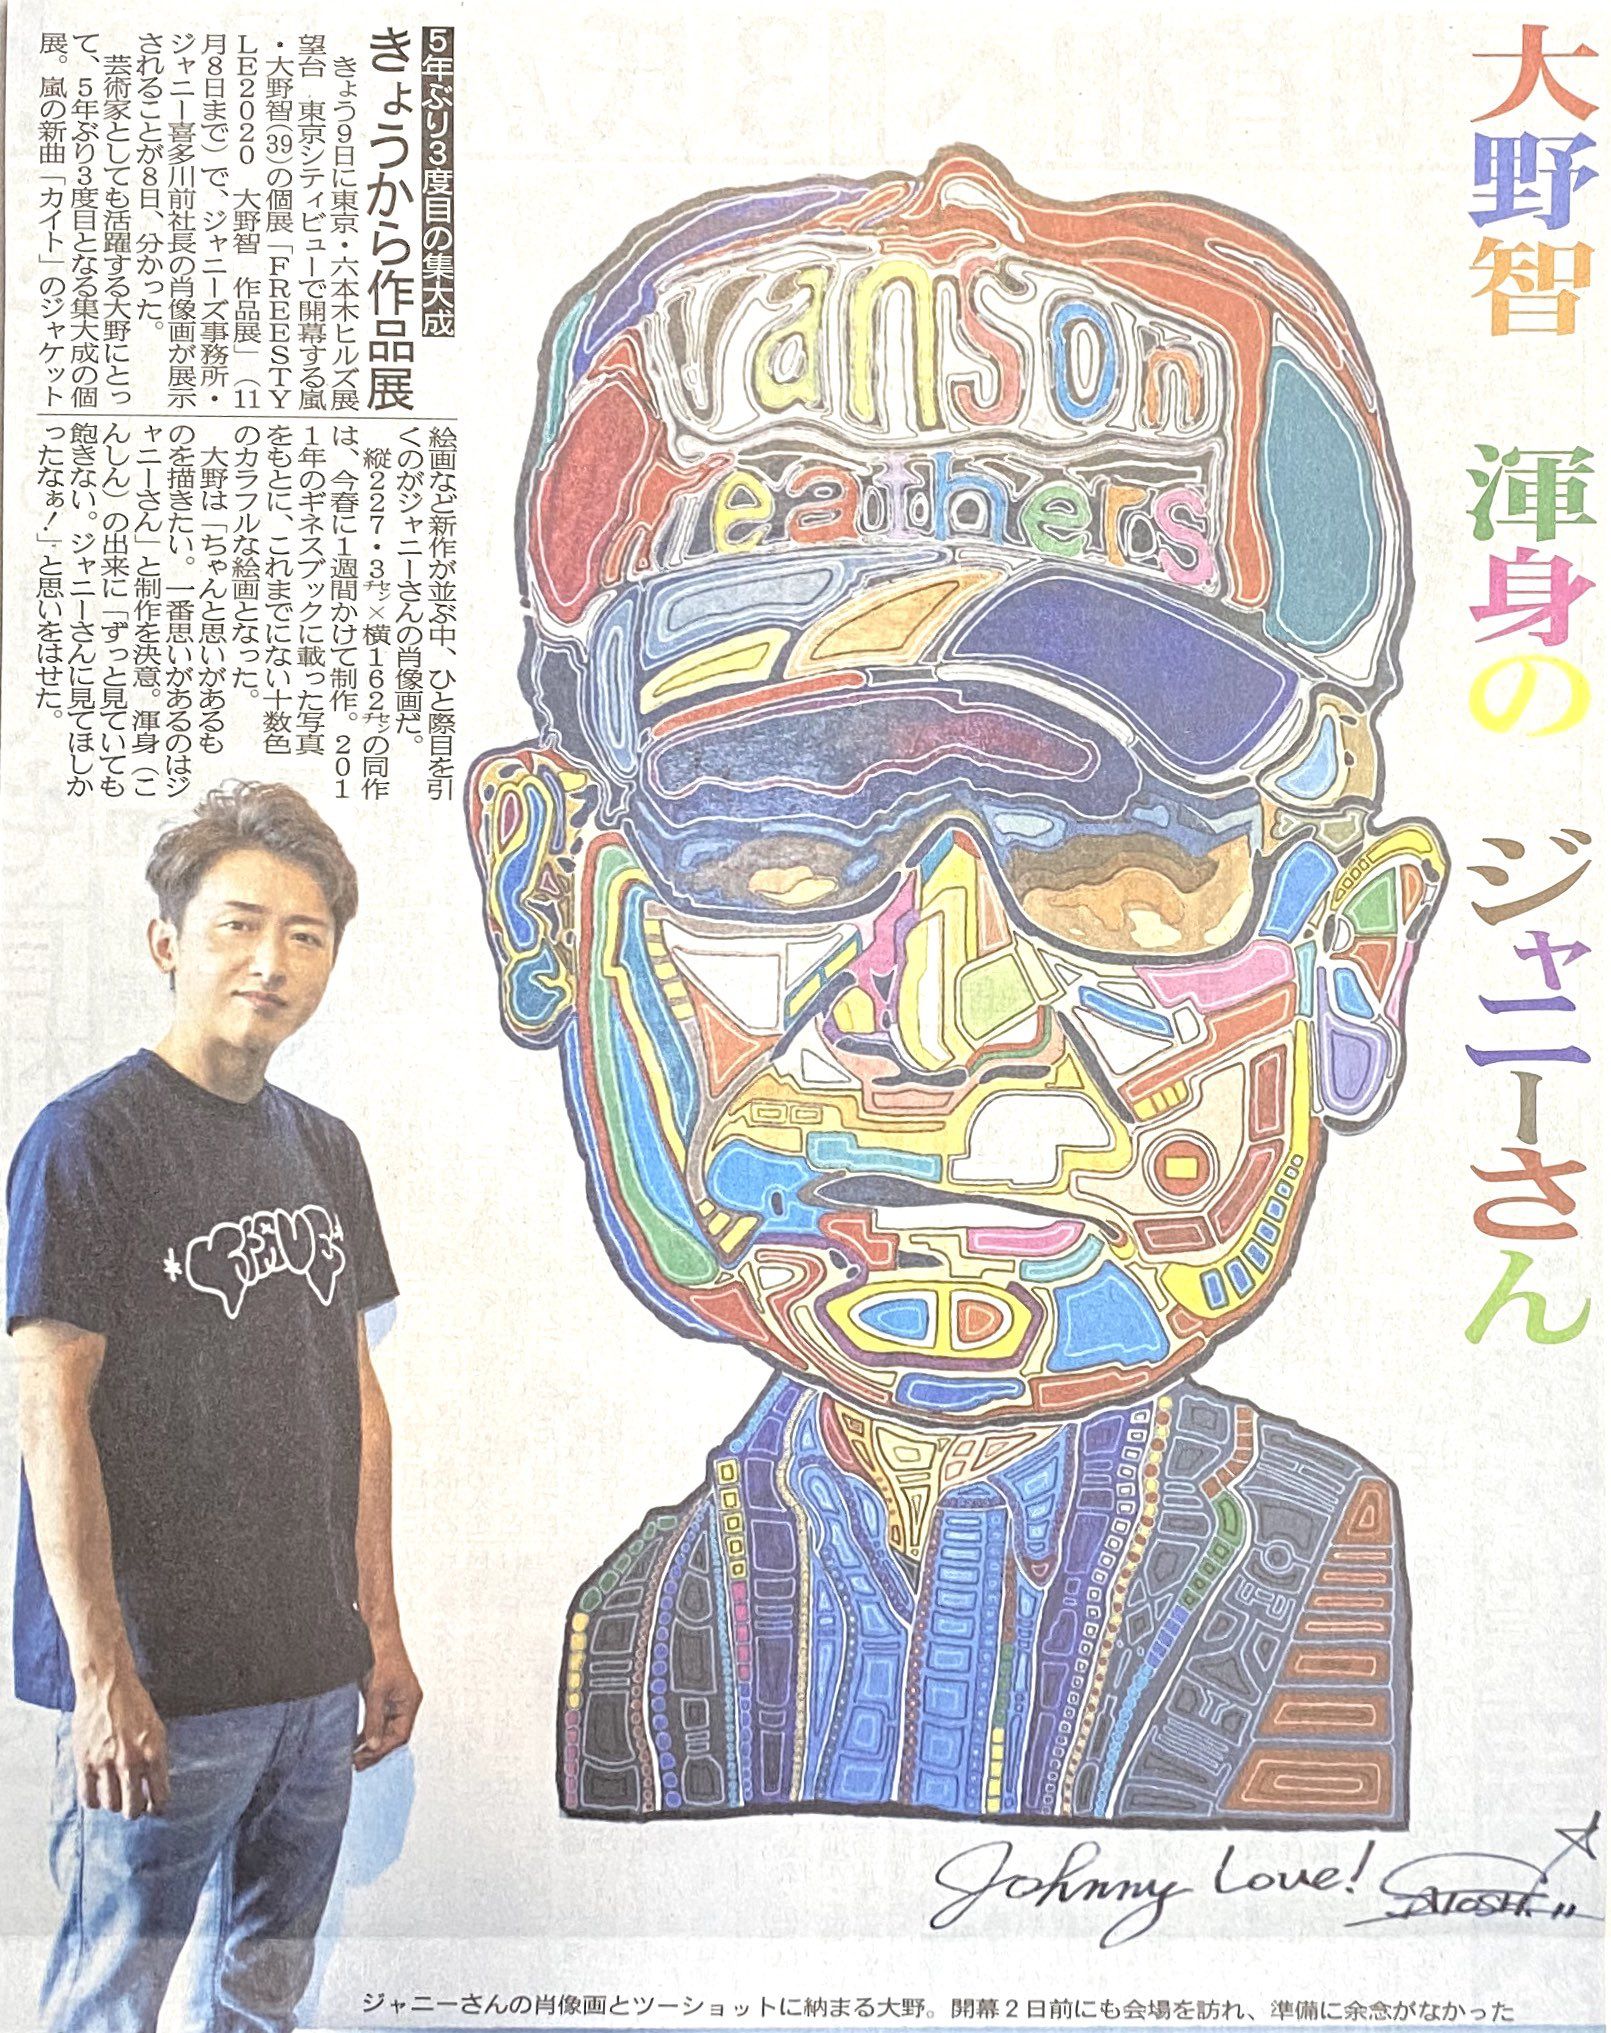 大野智 渾身のジャニーさん
5年ぶり3度目の集大成
きょうから作品展
きょう9日に東京・六本木ヒルズ展
望台 東京シティビューで開幕する嵐
・大野智(39)の個展「FREESTY
LE2020 大野智 作品展」(11
月8日まで)で、ジャニーズ事務所・
ジャニー喜多川前社長の肖像画が展示
されることが8日、分かった。
芸術家としても活躍する大野にとっ
て、5年ぶり3度目となる集大成の個
展。嵐の新曲「カイト」のジャケット
絵画など新作が並ぶ中、ひと際目を引
くのがジャニーさんの肖像画だ。
縦227・3㌢×横162㌢の同作
は、今春に1週間かけて制作。201
1年のギネスブックに載った写真
をもとに、これまでにない十数色
のカラフルな絵画となった。
大野は「ちゃんと思いがあるも
のを描きたい。一番思いがあるのはジ
ャニーさん」と制作を決意。渾身(こ
んしん)の出来に「ずっと見ていても
飽きない。ジャニーさんに見てほしか
ったなぁ!」と思いをはせた。
vanson
leathers
Johnny Love! SATOSHI
ジャニーさんの肖像画とツーショットに納まる大野。開幕2日前にも会場を訪れ、準備に余念がなかった